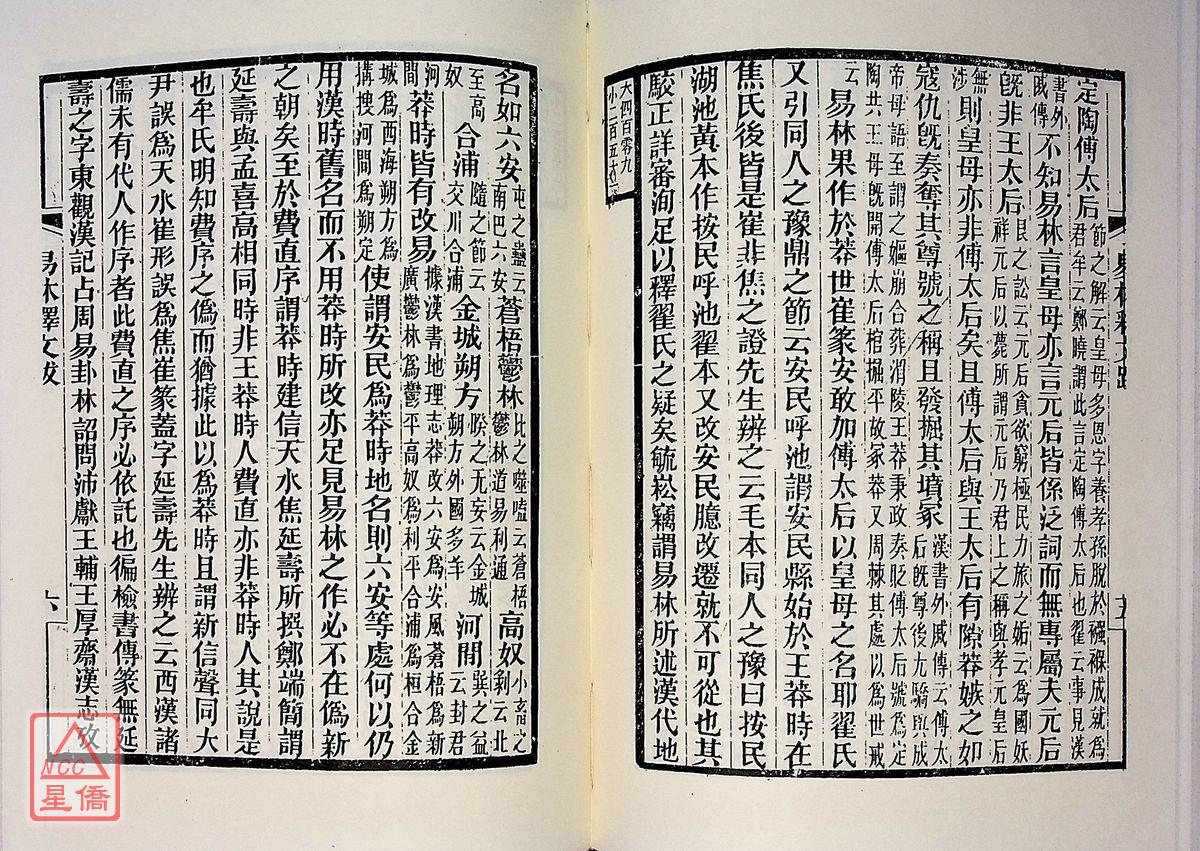 定陶傅太后節之解云皇母多恩字養孝孫脫於襁褓成就為
君牟云鄭曉謂此言定陶傅太后也翟云事見漢
書外
戚傳不知易林言皇母亦言元后皆係泛詞而無專屬夫元后
既非王太后艮之訟云元后貪欲窮極民力旅之姤云為國妖
祥元后以薨所謂元后乃君上之稱與孝元皇后
無
涉則皇母亦非傅太后矣且傅太后與王太后有隙莽嫉之如
寇仇既奏奪其尊號之稱且發掘其墳冢漢書外戚傳云傅太
后既尊後尤驕與成
帝母語至謂之嫗崩合葬渭陵王莽秉政奏貶傅太后號為定
陶共王母既開傅太后棺掘平故冢莽又周棘其處以為世戒
云易林果作於莽世崔篆安敢加傅太后以皇母之名耶翟氏
又引同人之豫鼎之節云安民呼池謂安民縣始於王莽時在
焦氏後皆是崔非焦之證先生辨之云毛本同人之豫曰按民
湖池黃本作按民呼池翟本又改安民臆改遷就不可從也其
駮正詳審洵足以釋翟氏之疑矣毓崧竊謂易林所述漢代地
大四百零九
小二百五
名如六安屯之蠱云
南巴六安蒼梧鬱林比之噬嗑云蒼梧
鬱林道易利通高奴小畜之
剝云北
至高
奴合浦隨之節云
交川合浦金城朔方睽之无妄云金城
朔方外國多羊河間巽之益
云封君
河
間莽時皆有改易據漢書地理志莽改六安為安風蒼梧為新
廣鬱林為鬱平高奴為利平合浦為桓合金
城為西海朔方為
搆搜河間為朔定使謂安民為莽時地名則六安等處何以仍
用漢時舊名而不用莽時所改亦足見易林之作必不在偽新
之朝矣至於費直序謂莽時建信天水焦延壽所撰鄭端簡謂
延壽與孟喜高相同時非王莽時人費直亦非莽時人其說是
也牟氏明知費序之偽而猶據此以為莽時且謂新信聲同大
尹誤為天水崔形誤為焦崔篆蓋字延壽先生辨之云西漢諸
儒未有代人作序者此費直之序必依託也徧檢書傳篆無延
壽之字東觀漢記占周易卦林詔問沛獻王輔王厚齋漢志攷
易林釋文跋
六
NCC
星僑